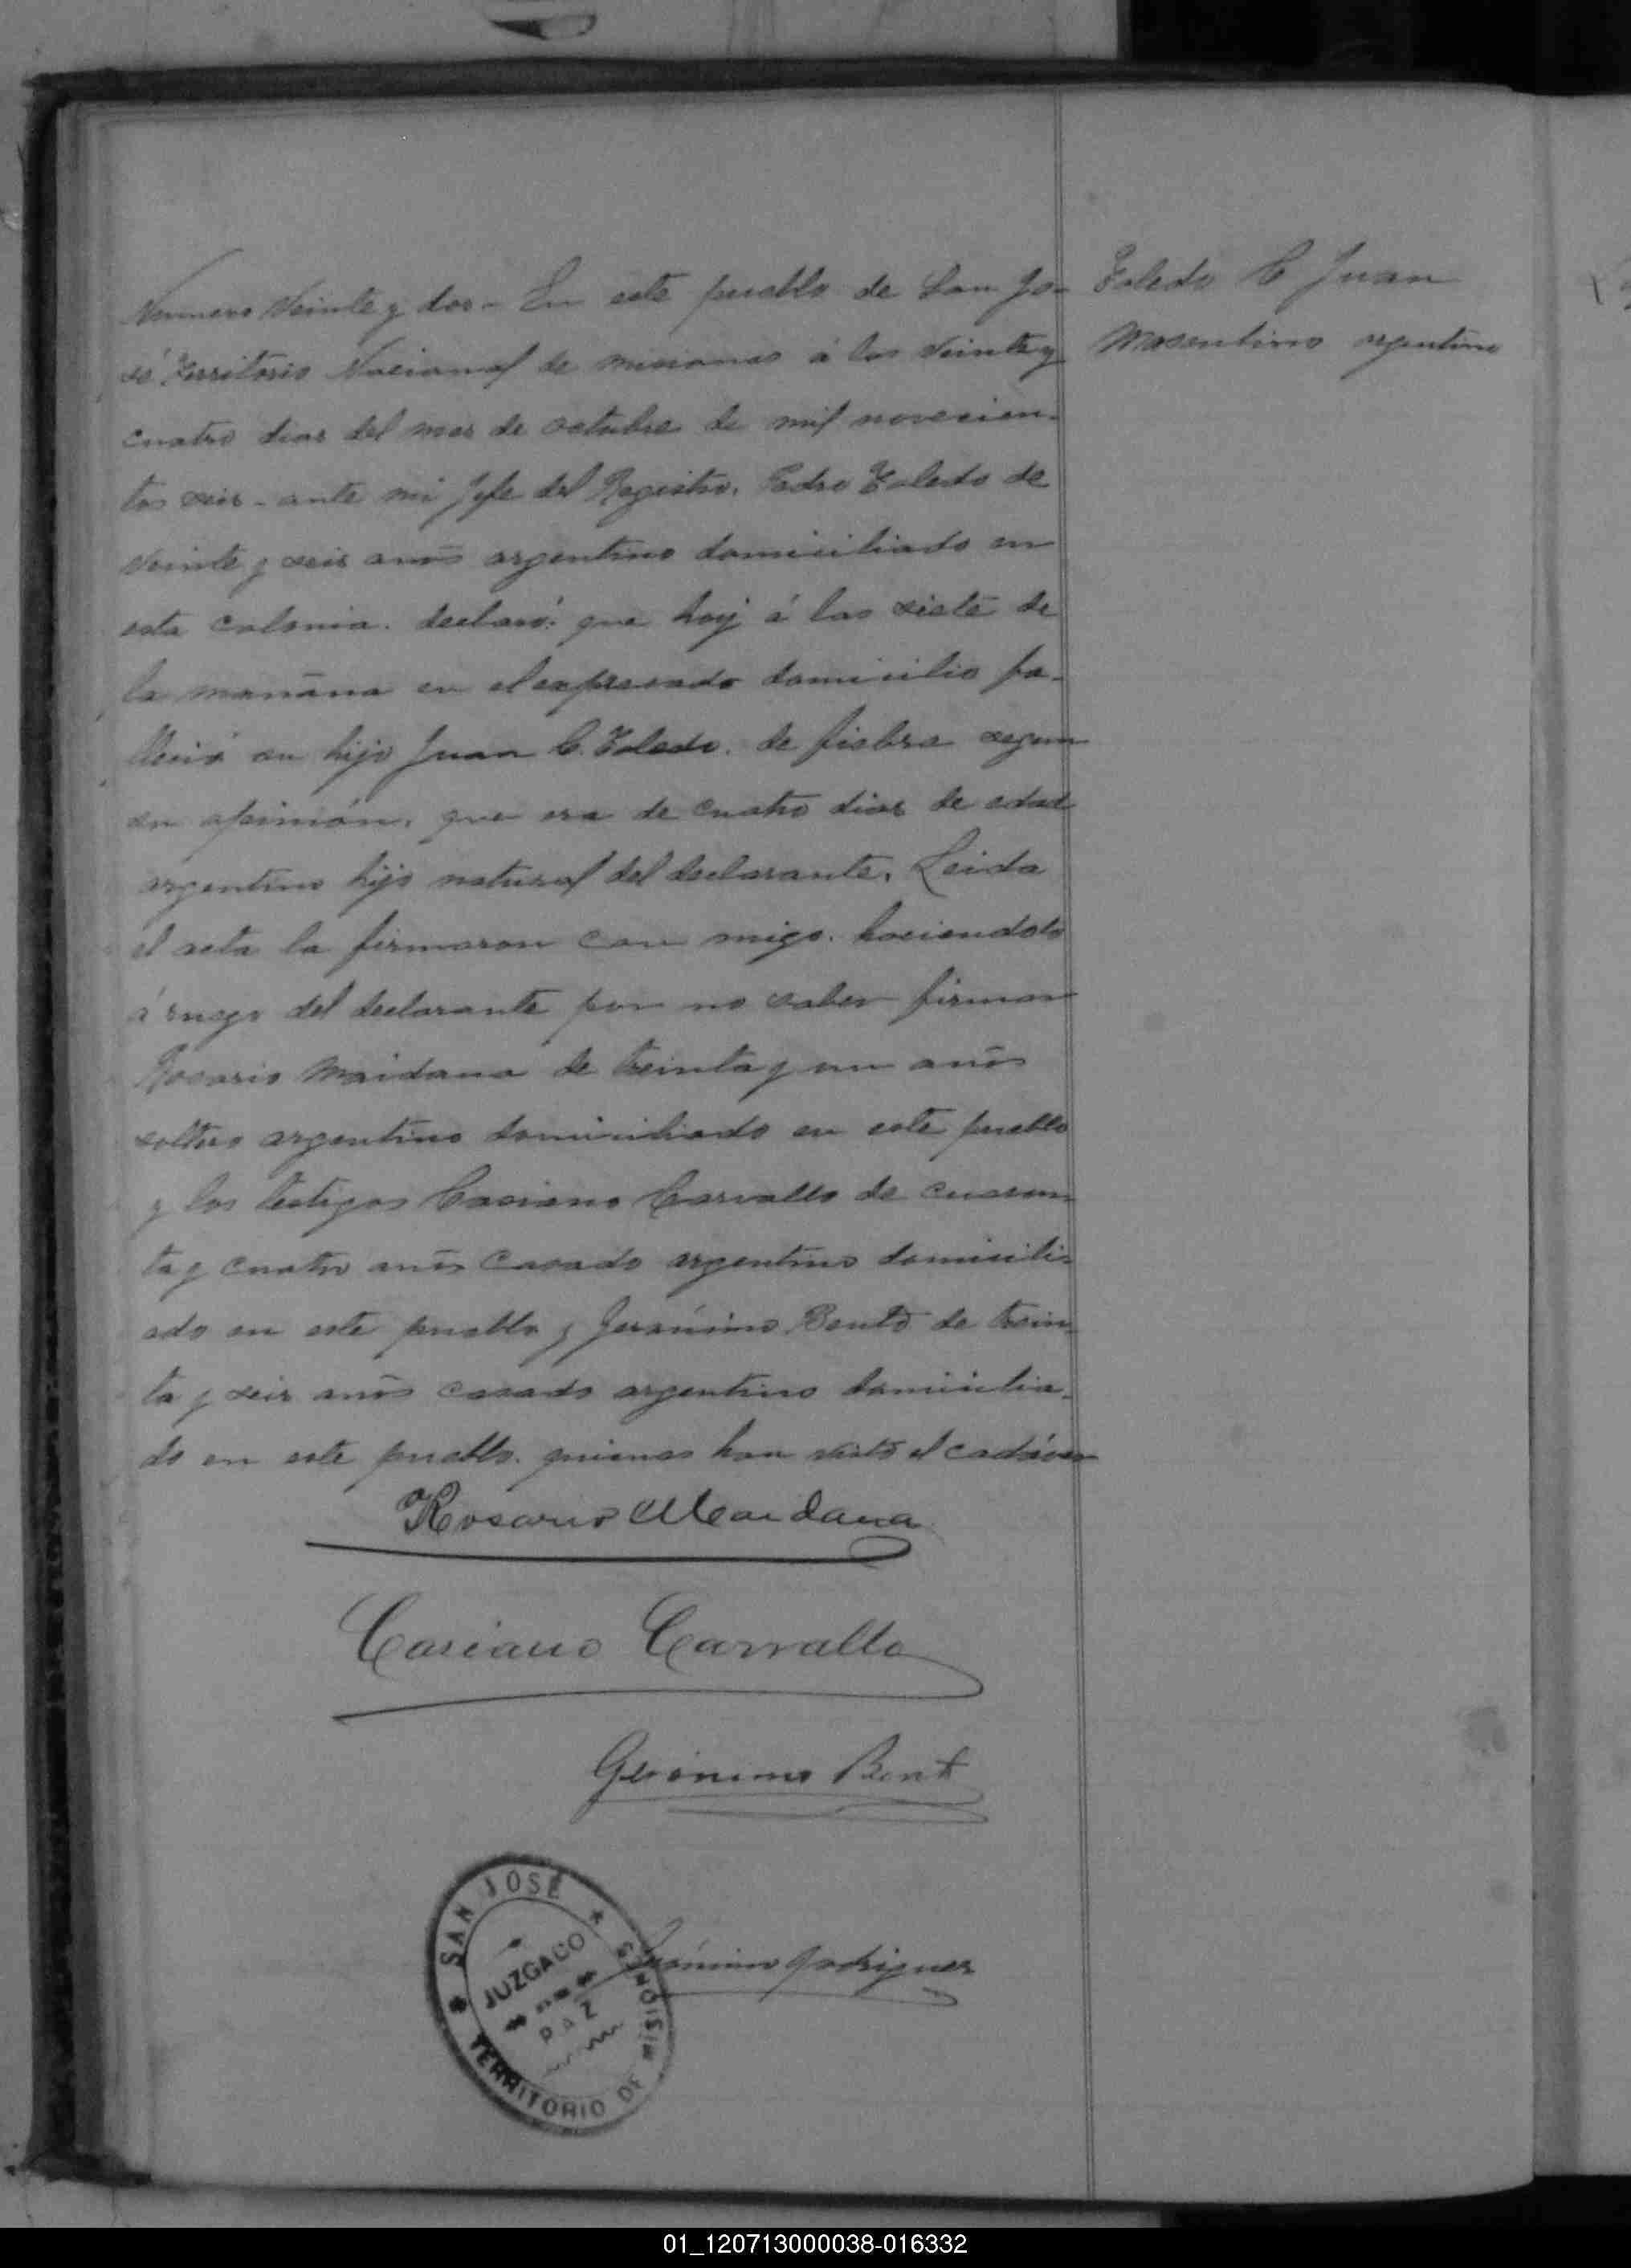 Numero Veinte y dos - En este pueblo de San Jo-
sé Territorio Nacional de misiones á los Veinte y
cuatro dias del mes de octubre de mil novecien-
tos seis - ante mi Jefe del Registro, Pedro Toledo de
Veinte y seis anōs argentino domiciliado en
esta colonia. declaró: que hoy á las siete de
la manāna en el expresado domicilio fa-
lleció su hijo Juan C. Toledo. de fiebre segun
su opinión, que era de cuatro dias de edad
argentino hijo natural del declarante. Leida
el acta la firmaron con migo. haciendolo
á ruego del declarante por no saber firmar
Rosario Maidana de treinta y un anōs
soltero argentino domiciliado en este pueblo
y los testigos Casiano Carvallo de cuaren-
ta y cuatro anōs casado argentino domicili-
ado en este pueblo y Jerónimo Bento de trein-
ta y seis anōs casado argentino domicilia-
do en este pueblo. quienes han visto el cadáver
Toledo C Juan
Masculino argentino
Rosario Maidana
Casiano Carvallo
Gerónimo Bent
Rodriguez
SAN JOSÉ
JUZGADO
PAZ
TERRITORIO DE MISIONES
01_120713000038-016332